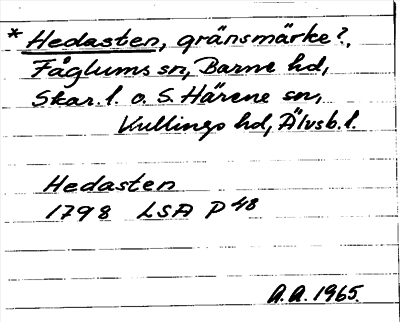 * Hedasten, gränsmärke?,
Fåglums sn, Barne hd,
Skar. l. o. S. Härene sn,
Kullings hd, Älvsb. l.
Hedasten
1798 LSA P 48
A.A. 1965.